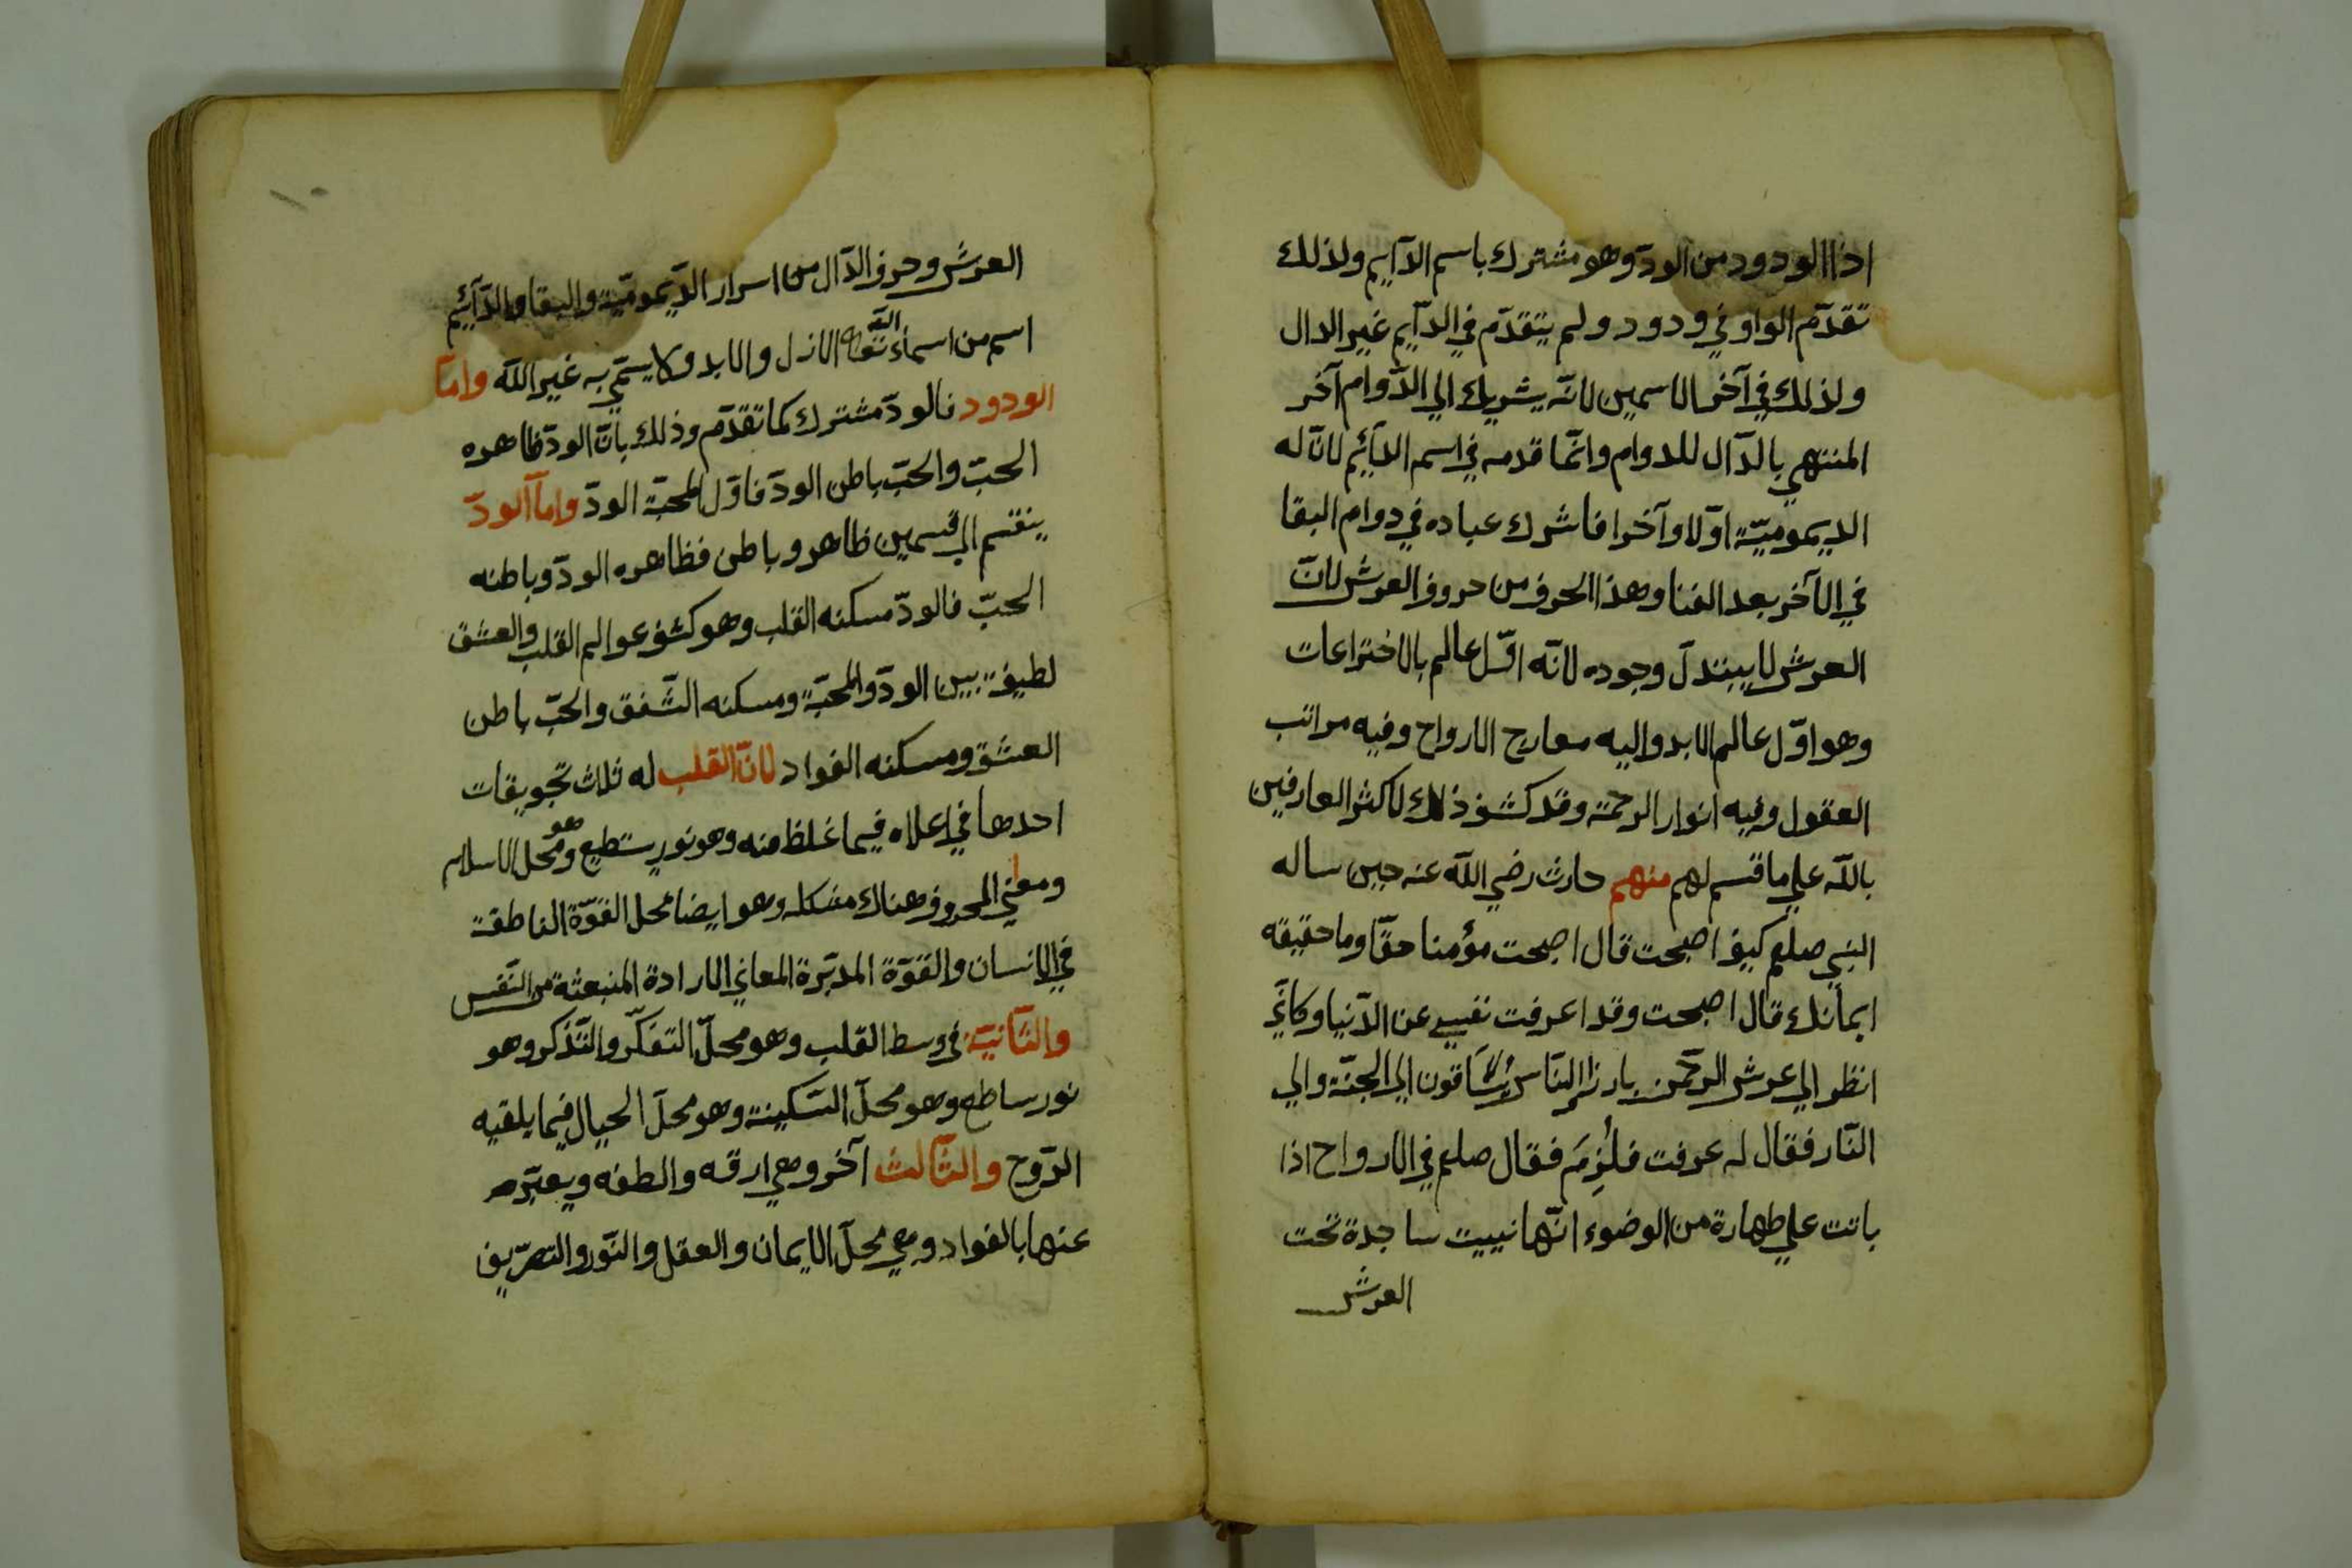 اذا الودود من الودّ وهو مشترك باسم الدآيم ولذلك
تقدّم الواو في ودود ولم يتقدّم في الدآيم غير الدال
ولذلك في آخر الاسمين لانّه يشريك الي الدّوام آخر
المنتهي بالدّال للدوام وانّما قدمه في اسم الدآئيم لانّ له
الديموميّة اوّلا وآخرا فاشرك عباده في دوام البقا
في الآخر بعد الفنا وهذا الحرف من حروف العرش لانّ
العرش لا يبتدل وجوده لانّه اوّل عالم بالاختراعات
وهو اوّل عالم الابد واليه معارج الارواح وفيه مراتب
العقول وفيه انوار الرحمة وقد كشف ذلك لاكثر العارفين
بالله علي ما قسم لهم منهم حارث رضي الله عنه حين ساله
النبي صلعم كيف اصبحت قال اصبحت مؤمنا حقّا وما حقيقه
ايمانك قال اصبحت وقد اعرفت نفسي عن الدّنيا وكانّي
انظر الي عرش الرحمن بارزا النّاس يساقون الي الجنّة والي
النّار فقال له عرفت فلُزِمَ فقال صلعم في الارواح اذا
باتت علي طهارة من الوضوء انّها نبيت ساجدة تحت
العرش
١٠
العرش وحرف الدّال من اسرار الدّيموميّة والبقا والدّآئيم
اسم من اسماء الله تعالى الازل والابد ولا يسمّي به غير الله وامّا
الودود فالودّ مشترك كما تقدّم وذلك بانّ الودّ ظاهره
الحبّ والحبّ باطن الودّ فاوّل المحبّة الودّ وامّا الودّ
ينقسم الي قسمين ظاهر وباطن فظاهره الودّ وباطنه
الحبّ فالودّ مسكنه القلب وهو كشف عوالم القلب والعشق
لطيفة بين الودّ والمحبّة ومسكنه الشّفق والحبّ باطن
العشق ومسكنه الفواد لانّ القلب له ثلاث تجويقات
احدها في اعلاه فيما غلظ منه وهو نور يستطيع وهو محل الاسلام
ومعاني الحروف هناك مشكله وهو ايضا محل القوّة الناطقة
في الانسان والقوّة المدبّرة المعاني الارادة المنبعثة من النّفس
والثّانيّة في وسط القلب وهو محلّ التفكّر والتّذكر وهو
نور ساطع وهو محلّ السّكينة وهو محلّ الخيال فيما يلقيه
الرّوح والثّالث آخر وهي ارقه والطفه ويعبّر
عنها بالفواد وهي محلّ الايمان والعقل والنّور والتصرّيف